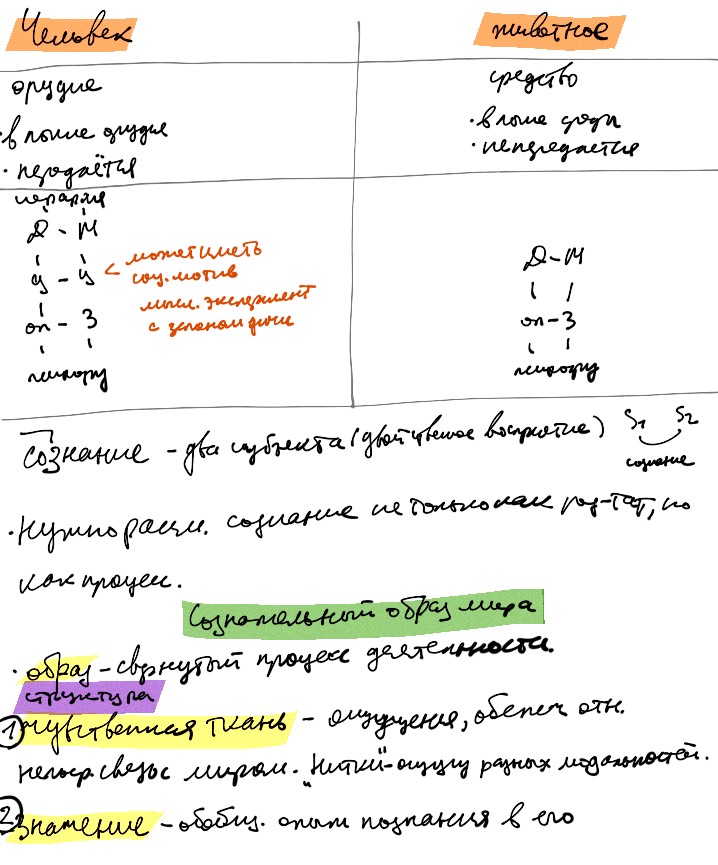 Человек
животное
орудие
средство
• в поше орудия
• в поше среды
• передаётся
• не передается
иерархия
Д - М
Д - М
у - у
< может иметь
соц. мотив
мысл. эксперимент
оп - З
оп - З
сознание - два субъекта (двойственное восприятие) S1 S2
сознание
• Нужно рассм. сознание не только как рез-тат, но
как процесс.
Сознательный образ мира
• образ - свернутый процесс деятельности.
структура
1 чувственная ткань - ощущения, обеспеч отн.
непоср. связь с миром. "Нитки" - ощущ разных модальностей.
2 значение - обобщ. опыт познания в его